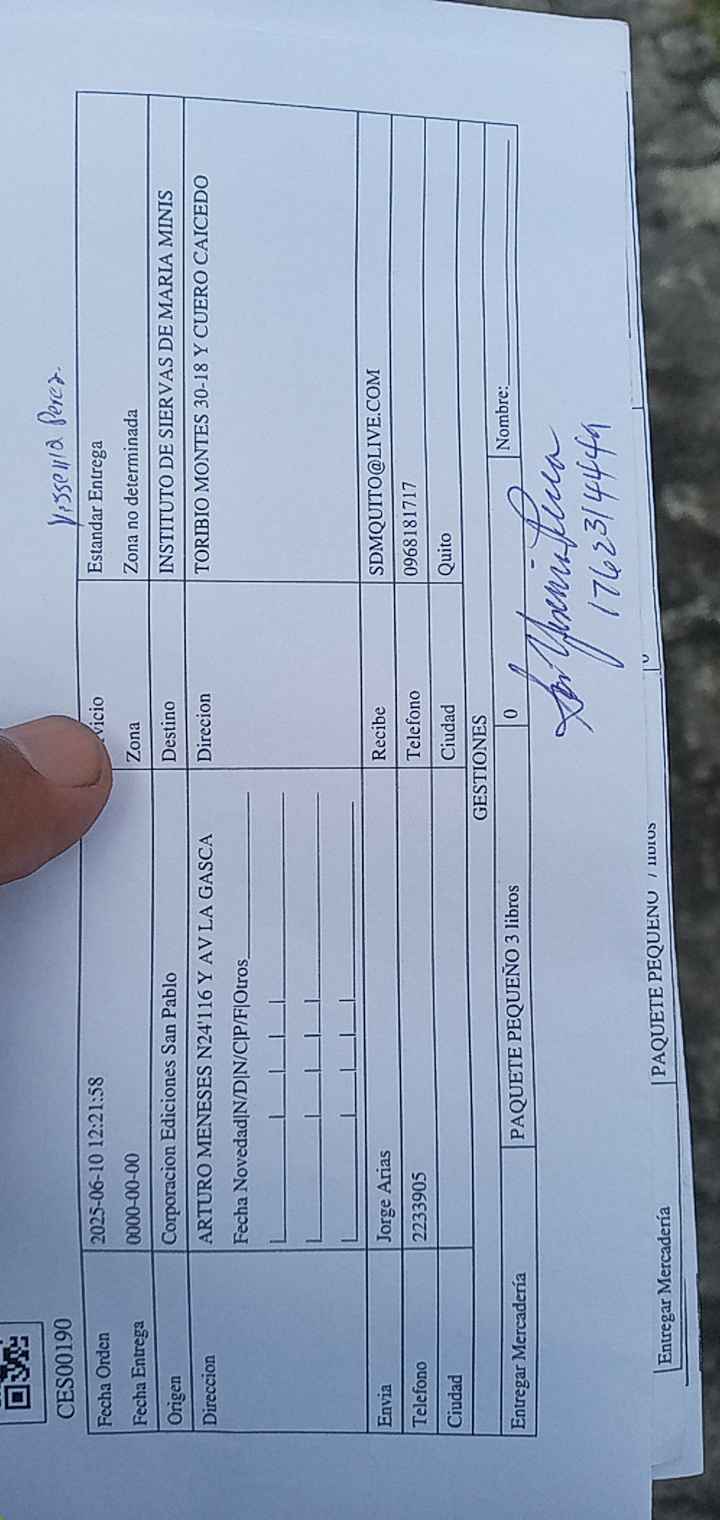 Yissenia Perez
CES00190
Fecha Orden 2025-06-10 12:21:58 vicio Estandar Entrega
Fecha Entrega 0000-00-00 Zona Zona no determinada
Origen Corporacion Ediciones San Pablo Destino INSTITUTO DE SIERVAS DE MARIA MINIS
Direccion ARTURO MENESES N24'116 Y AV LA GASCA Direcion TORIBIO MONTES 30-18 Y CUERO CAICEDO
Fecha Novedad|N/D|N/C|P/F|Otros
Envia Jorge Arias Recibe SDMQUITO@LIVE.COM
Telefono 2233905 Telefono 0968181717
Ciudad Ciudad Quito
GESTIONES
Entregar Mercadería PAQUETE PEQUEÑO 3 libros 0 Nombre:
1762314449
Entregar Mercadería PAQUETE PEQUEÑO 7 libros 0